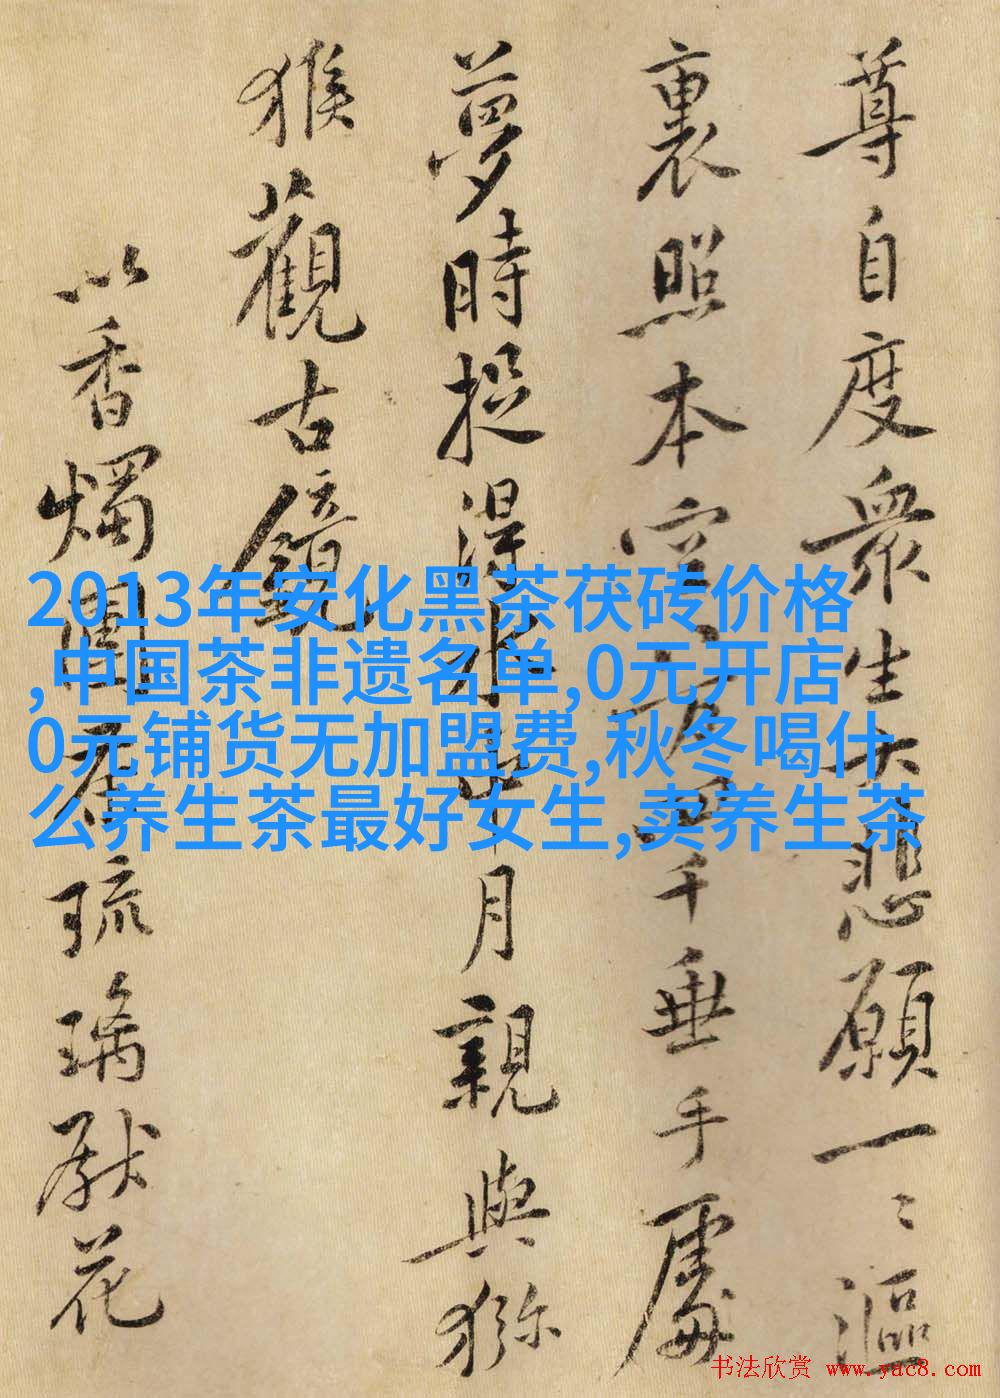 尊自度衆生大悲願一〻漚
裏照本空八万四千垂手處
夢時捉得水中月親與獼
猴觀古鏡
以香燭團茶琉璃獻花
2013年安化黑茶茯砖价格
,中国茶非遗名单,0元开店
0元铺货无加盟费,秋冬喝什
么养生茶最好女生,卖养生茶
书法欣赏 www.yac8.com